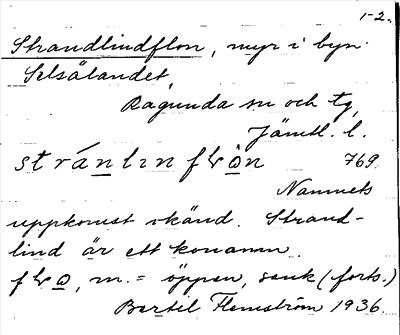 1-2.
Strandlindflon, myr i byn
Selsålandet,
Ragunda sn och tg,
Jämtl. l.
stránlın flo̱n 769.
Namnets
uppkomst okänd. Strand-
lind är ett konamn.
flo̱, m. = öppen, sank (forts.)
Bertil Flemström 1936.